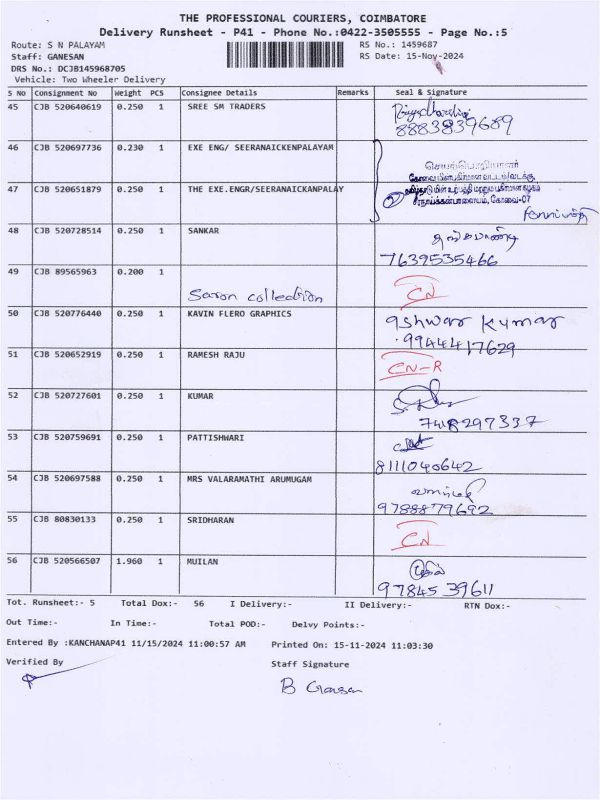 THE PROFESSIONAL COURIERS, COIMBATORE
Delivery Runsheet - P41 - Phone No.:0422-3505555 - Page No.:5
Route: S N PALAYAM RS No.: 1459687
Staff: GANESAN RS Date: 15-Nov-2024
DRS No.: DCJB145968705
Vehicle: Two Wheeler Delivery
S No Consignment No Weight PCS Consignee Details Remarks Seal & Signature
45 CJB 520640619 0.250 1 SREE SM TRADERS
8883839689
46 CJB 520697736 0.230 1 EXE ENG/ SEERANAICKENPALAYAM
செயற்பொறியாளர்
47 CJB 520651879 0.250 1 THE EXE.ENGR/SEERANAICKANPALAY
தமிழ்நாடு மின் உற்பத்தி மற்றும் பகிர்மான கழகம்
சீரநாயக்கன்பாளையம், கோவை-07
48 CJB 520728514 0.250 1 SANKAR
தங்கபாண்டி
7639535466
49 CJB 89565963 0.200 1
Saron collection CN
50 CJB 520776440 0.250 1 KAVIN FLERO GRAPHICS
9944417629
51 CJB 520652919 0.250 1 RAMESH RAJU
CN-R
52 CJB 520727601 0.250 1 KUMAR
7418297337
53 CJB 520759691 0.250 1 PATTISHWARI
8111040642
54 CJB 520697588 0.250 1 MRS VALARAMATHI ARUMUGAM
9788879692
55 CJB 80830133 0.250 1 SRIDHARAN
CN
56 CJB 520566507 1.960 1 MUILAN
9784539611
Tot. Runsheet:- 5 Total Dox:- 56 I Delivery:- II Delivery:- RTN Dox:-
Out Time:- In Time:- Total POD:- Delvy Points:-
Entered By :KANCHANAP41 11/15/2024 11:00:57 AM Printed On: 15-11-2024 11:03:30
Verified By Staff Signature